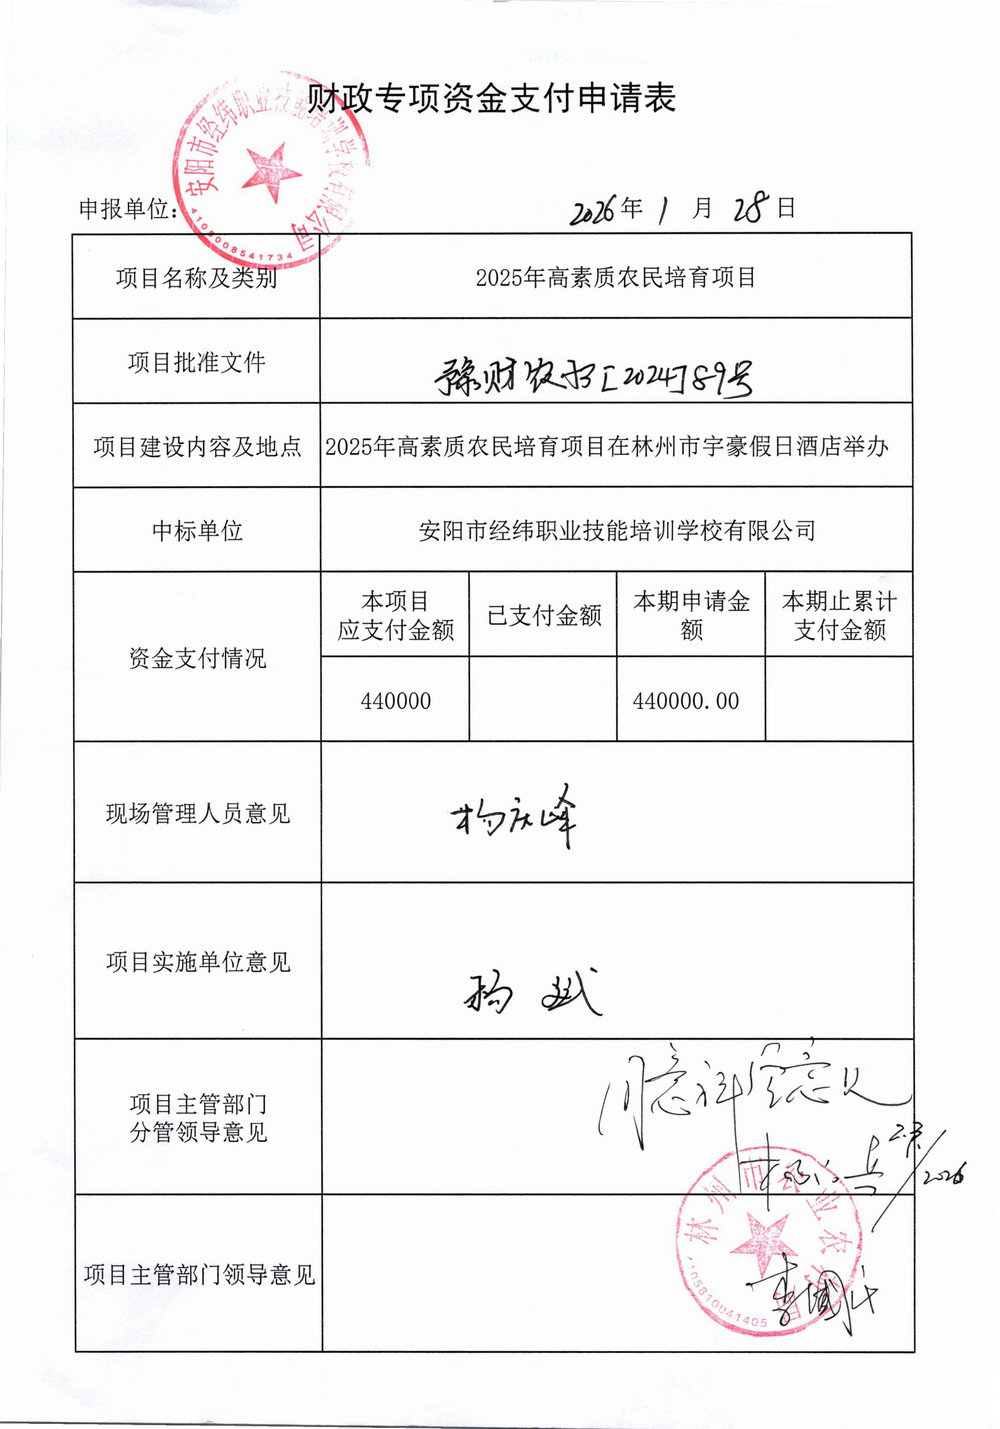 财政专项资金支付申请表
安阳市经纬职业技能培训学校有限公司
4105008541734
申报单位:
2026年 1 月 28 日
项目名称及类别
2025年高素质农民培育项目
项目批准文件
豫财农水[2024]89号
项目建设内容及地点
2025年高素质农民培育项目在林州市宇豪假日酒店举办
中标单位
安阳市经纬职业技能培训学校有限公司
资金支付情况
本项目
应支付金额
已支付金额
本期申请金
额
本期止累计
支付金额
440000
440000.00
现场管理人员意见
杨庆峰
项目实施单位意见
杨斌
项目主管部门
分管领导意见
同意科室意见
2026
项目主管部门领导意见
林州市农业农村局
4105810041405